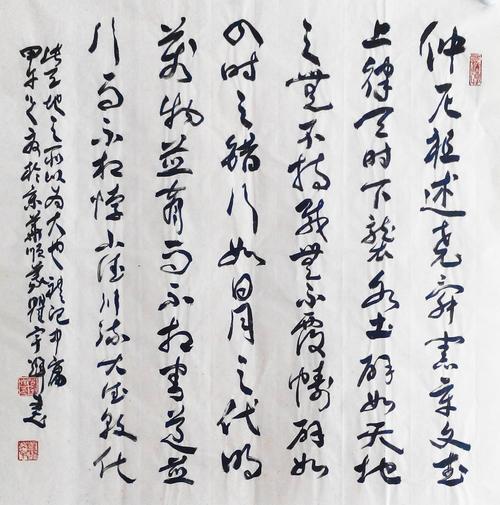 仲尼祖述堯舜憲章文武
上律天時下襲水土辟如天地
之無不持載無不覆幬辟如
四時之錯行如日月之代明
萬物並育而不相害道並
行而不相悖小德川流大德敦化
此天地之所以為大也禮記中庸
甲午之夏於京華順義